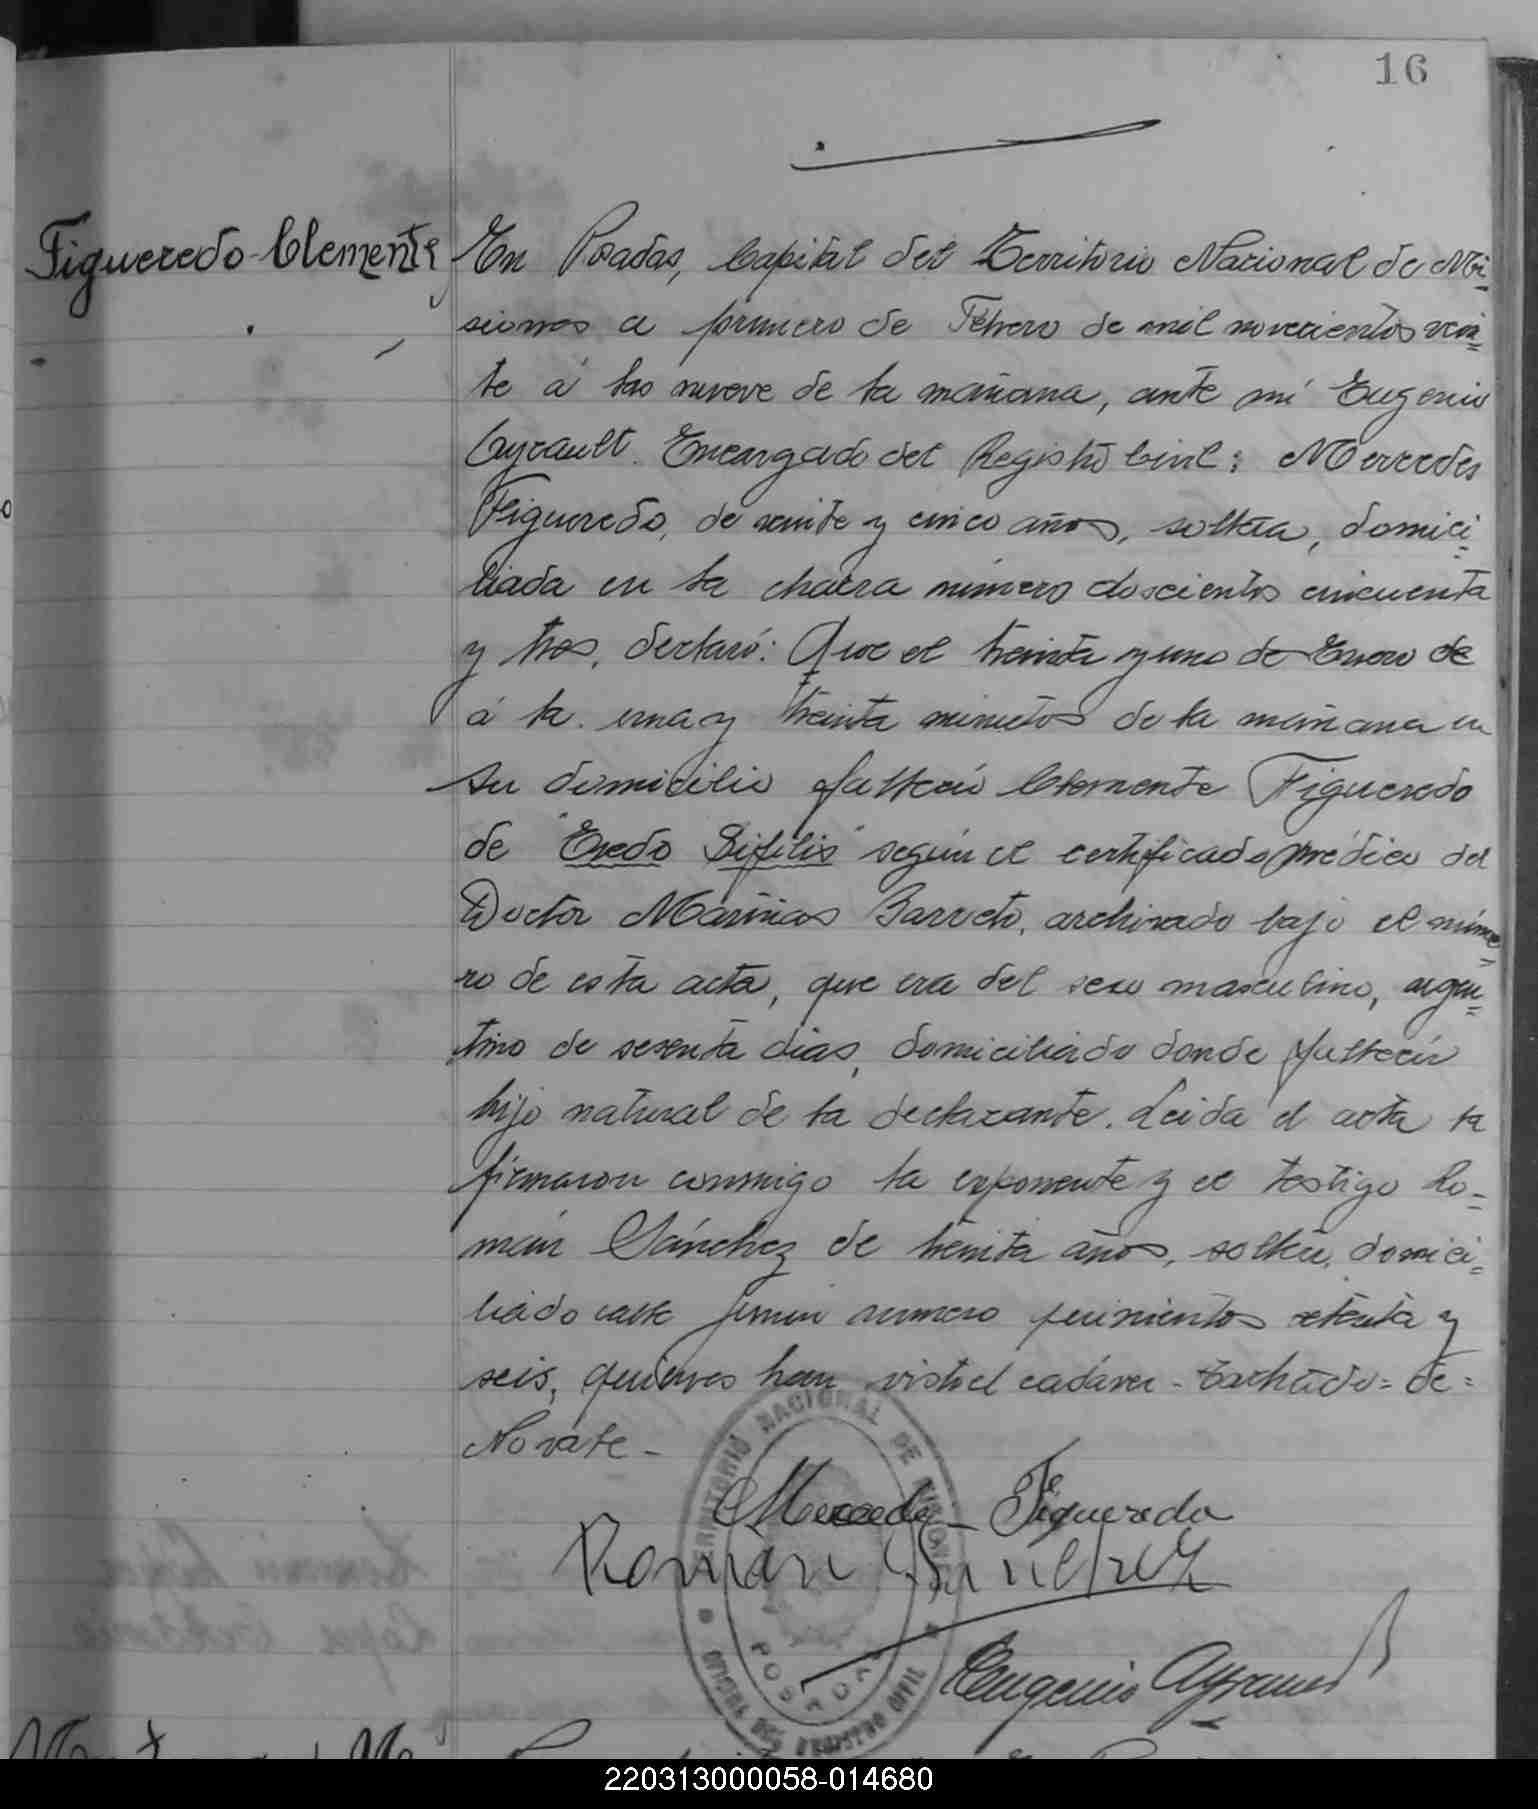 16
Figueredo Clemente
En Posadas, Capital del Territorio Nacional de Mi=
siones a primero de Febrero de mil novecientos vein=
te á las nueve de la mañana, ante mi Eugenio
Ayrault. Encargado del Registro Civil: Mercedes
Figueredo, de veinte y cinco años, soltera, domici=
liada en la chacra número doscientos cincuenta
y tres, declaró: Que el treinta y uno de Enero de
á la una y treinta minutos de la mañana en
su domicilio falleció Clemente Figueredo
de "Eredo Sifilis" según el certificado médico del
Doctor Barreto, archivado bajo el núme=
ro de esta acta, que era del sexo masculino, argen=
tino de sesenta dias, domiciliado donde falleció
hijo natural de la declarante. Leida el acta la
firmaron conmigo la exponente y el testigo Ro=
mán Sánchez de treinta años, soltero, domici=
liado calle Junin numero quinientos setenta y
seis, quienes han visto el cadáver - Tachado = de =
No vale -
Mercedes Figueredo
Roman Sanchez
Eugenio Ayrault
TERRITORIO NACIONAL DE MISIONES
OFICINA DEL REGISTRO CIVIL
POSADAS
220313000058-014680